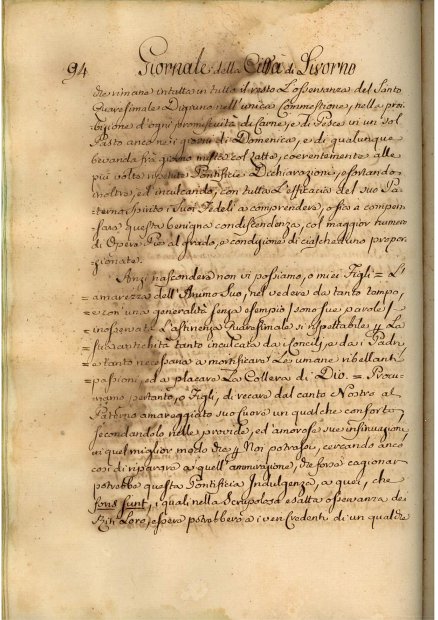 94 Giornale della Città di Livorno
che rimane in tutta in tutto il resto l'osservanza del Santo
Quaresimale Digiuno nell'unica Commestione, nella proi-
bizione d'ogni promiscuità di Carne, e di Pesce in un sol
Pasto anco ne i giorni di Domenica, e di qualunque
bevanda frà giorno mista col Latte, coerentemente alle
più volte ripetute Pontificie Dichiarazioni, esortando
inoltre, ed inculcando, con tutta l'efficacia del suo Pa-
terno Spirito i Suoi Fedeli a comprendere, o sia a compen-
sare questa benigna condiscendenza, col maggior numero
di Opere Pie al grado, e condizione di ciascheduno propor-
zionate.
Anzi nascondere non vi possiamo, o miei Figli = L'
amarezza dell'Animo Suo, nel vedere da tanto tempo,
e con una generalità senza esempio / sono sue parole /
inosservata l'astinenza Quaresimale si rispettabile p. La
sua antichità tanto inculcata da i Concilj, e da i Padri
e tanto necessaria a mortificare Le umane ribellanti
passioni, ed a placare La Collera di Dio. = Procu-
riamo pertanto, o Figli, di recare dal canto Nostro al
Paterno amareggiato suo cuore un qualche conforto
secondandolo nelle provide, ed amorose sue insinuazioni
in quel miglior modo che p. Noi potrassi, cercando anco
così di riparare a quell'ammirazione, che forse cagionar
potrebbe questa Pontificia Indulgenza, a quei, che
foris sunt, i quali nella Scrupolosa esatta osservanza dei
Riti Loro, essere potrebbero a i veri Credenti di un qualche